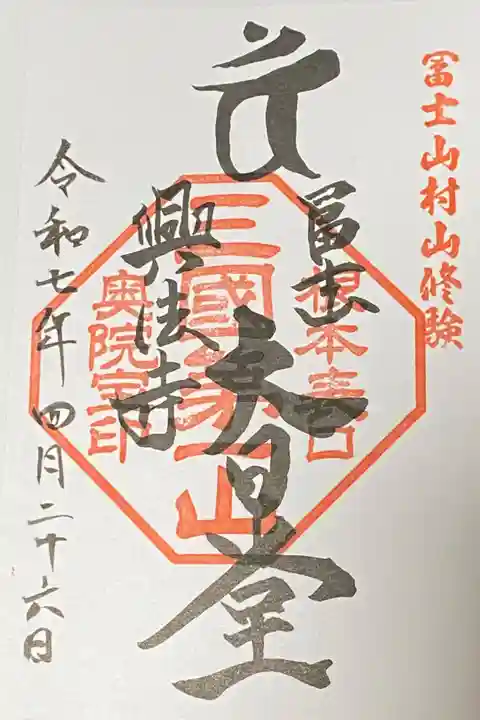 冨士山村山修験
冨士
大日堂
興法寺
根本表口
三國第一山
奥院室印
令和七年四月二十六日